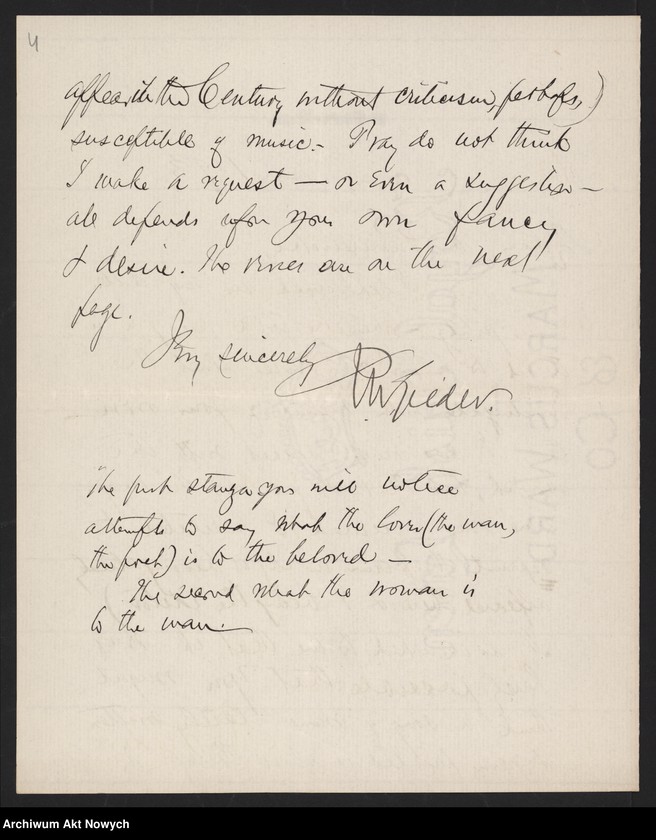 4
appear in the Century without criticism, perhaps,)
susceptible of music. - Pray do not think
I make a request — or even a suggestion —
all depends upon your own fancy
& desire. The verses are on the next
page.
Very sincerely
R W Gilder.
The first stanza you will notice
attempts to say what the lover (the man,
the poet) is to the beloved —
The second what the woman is
to the man. —
MARCUS WARD
& CO
Archiwum Akt Nowych